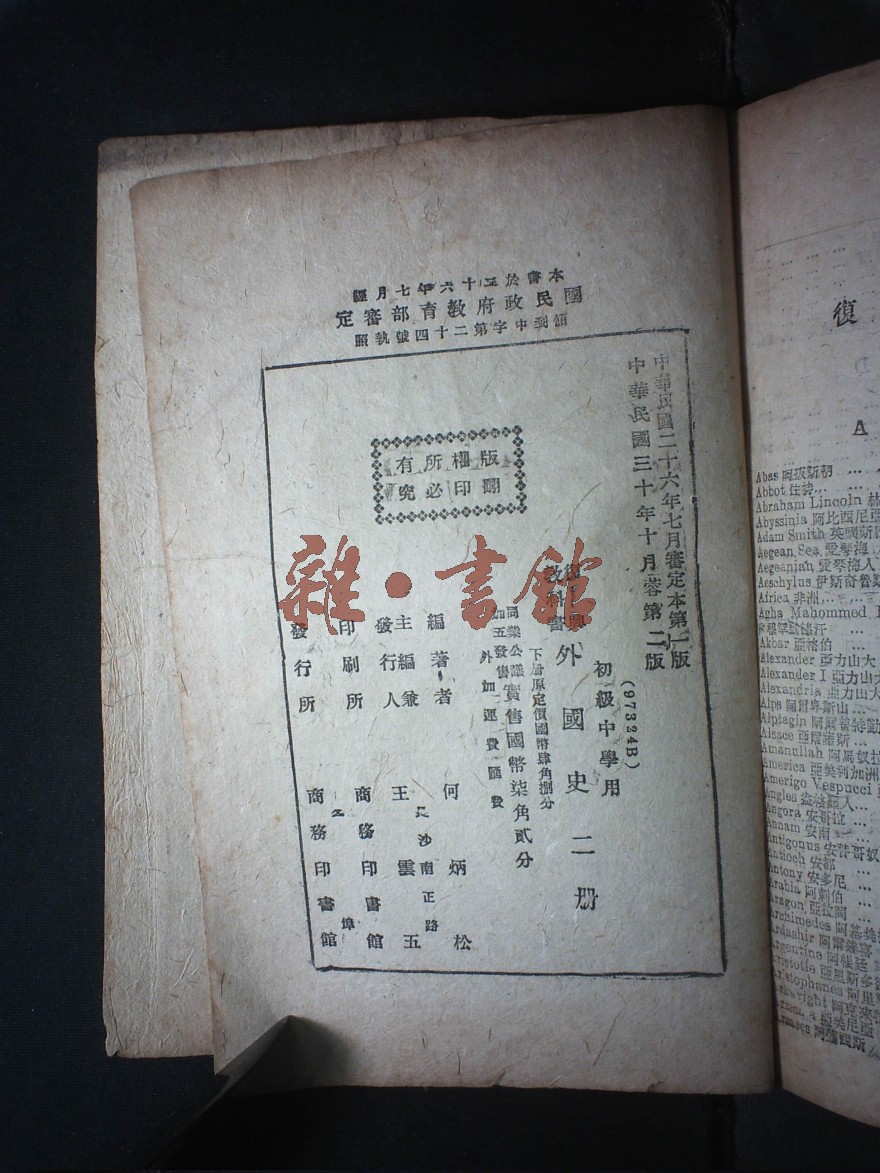 本書於二十六年七月經
國民政府教育部審定
領到中字第二十四號執照
中華民國二十六年七月審定本第一版
中華民國三十年十月蓉第二版
(97324B)
初級中學用
復興
教科書
外國史二册
下册原定價國幣肆角捌分
實售國幣柒角貳分
同業公議
加五發售
外加運費匯費
版權所有
翻印必究
編著者 何炳松
主編兼
發行人
王雲五
長沙南正路
印刷所 商務印書館
發行所 商務印書館
各埠
雜·書館
復
A
Abas 阿拔斯朝
Abbot 住持
Abraham Lincoln 林
Abyssinia 阿比西尼亞
Adam Smith 英國斯
Aegean Sea 愛琴海
Aegeaniah 愛琴海人
Aeschylus 伊斯奇魯斯
Africa 非洲
Agha Mahommed
Akbar 亞格伯
Alexander 亞力山大
Alexander I 亞力山大
Alexandria 亞力山大
Alps 阿爾卑斯山
Alptagin 阿爾普特勤
Alsace 亞爾薩斯
Amanullah 阿馬奴拉
America 亞美利加洲
Amerigo Vespucci
Angles 盎格羅人
Angora 安哥拉
Annam 安南
Antigonus 安替哥奴
Antioch 安都
Antony 安多尼
Arabia 阿剌伯
Aragon 亞拉岡
Archimedes 阿基美
Ardashir 阿爾達希
Argentina 阿根廷
Aristotle 亞里斯多
Aristophanes 阿里